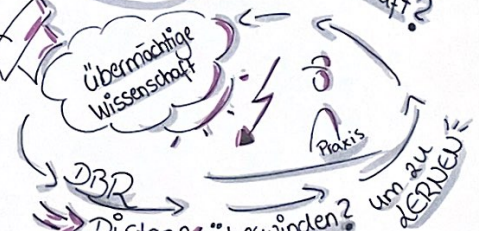 übermächtige
Wissenschaft
Praxis
DBR
um zu
LERNEN